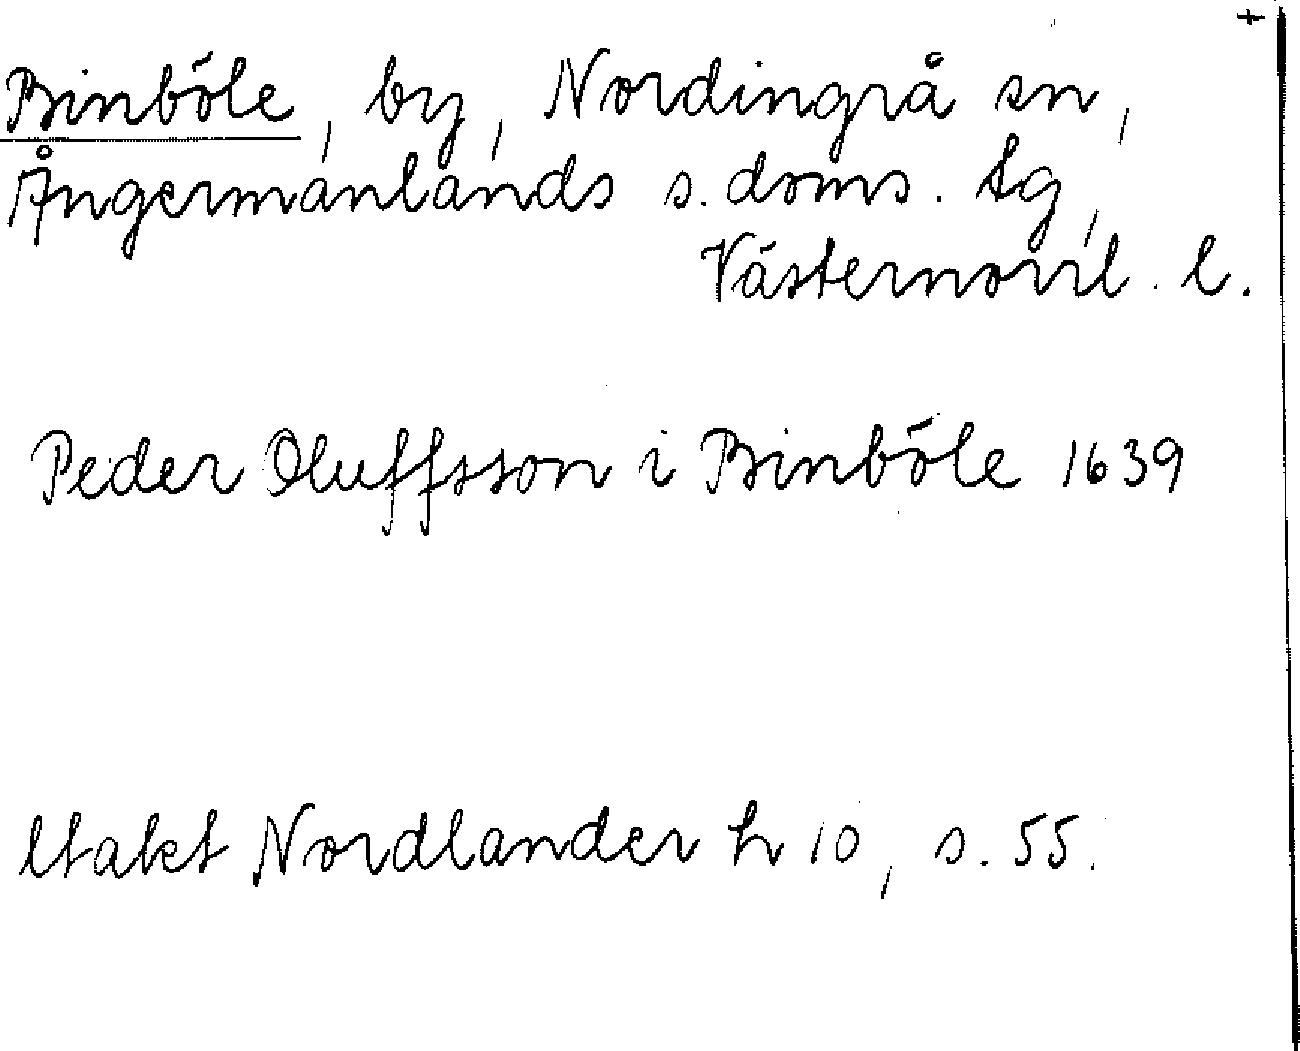 +
Binböle, by, Nordingrå sn,
Ångermanlands s. doms. tg,
Västernorrl. l.
Peder Oluffsson i Binböle 1639
Utakt Nordlander h 10, s. 55.